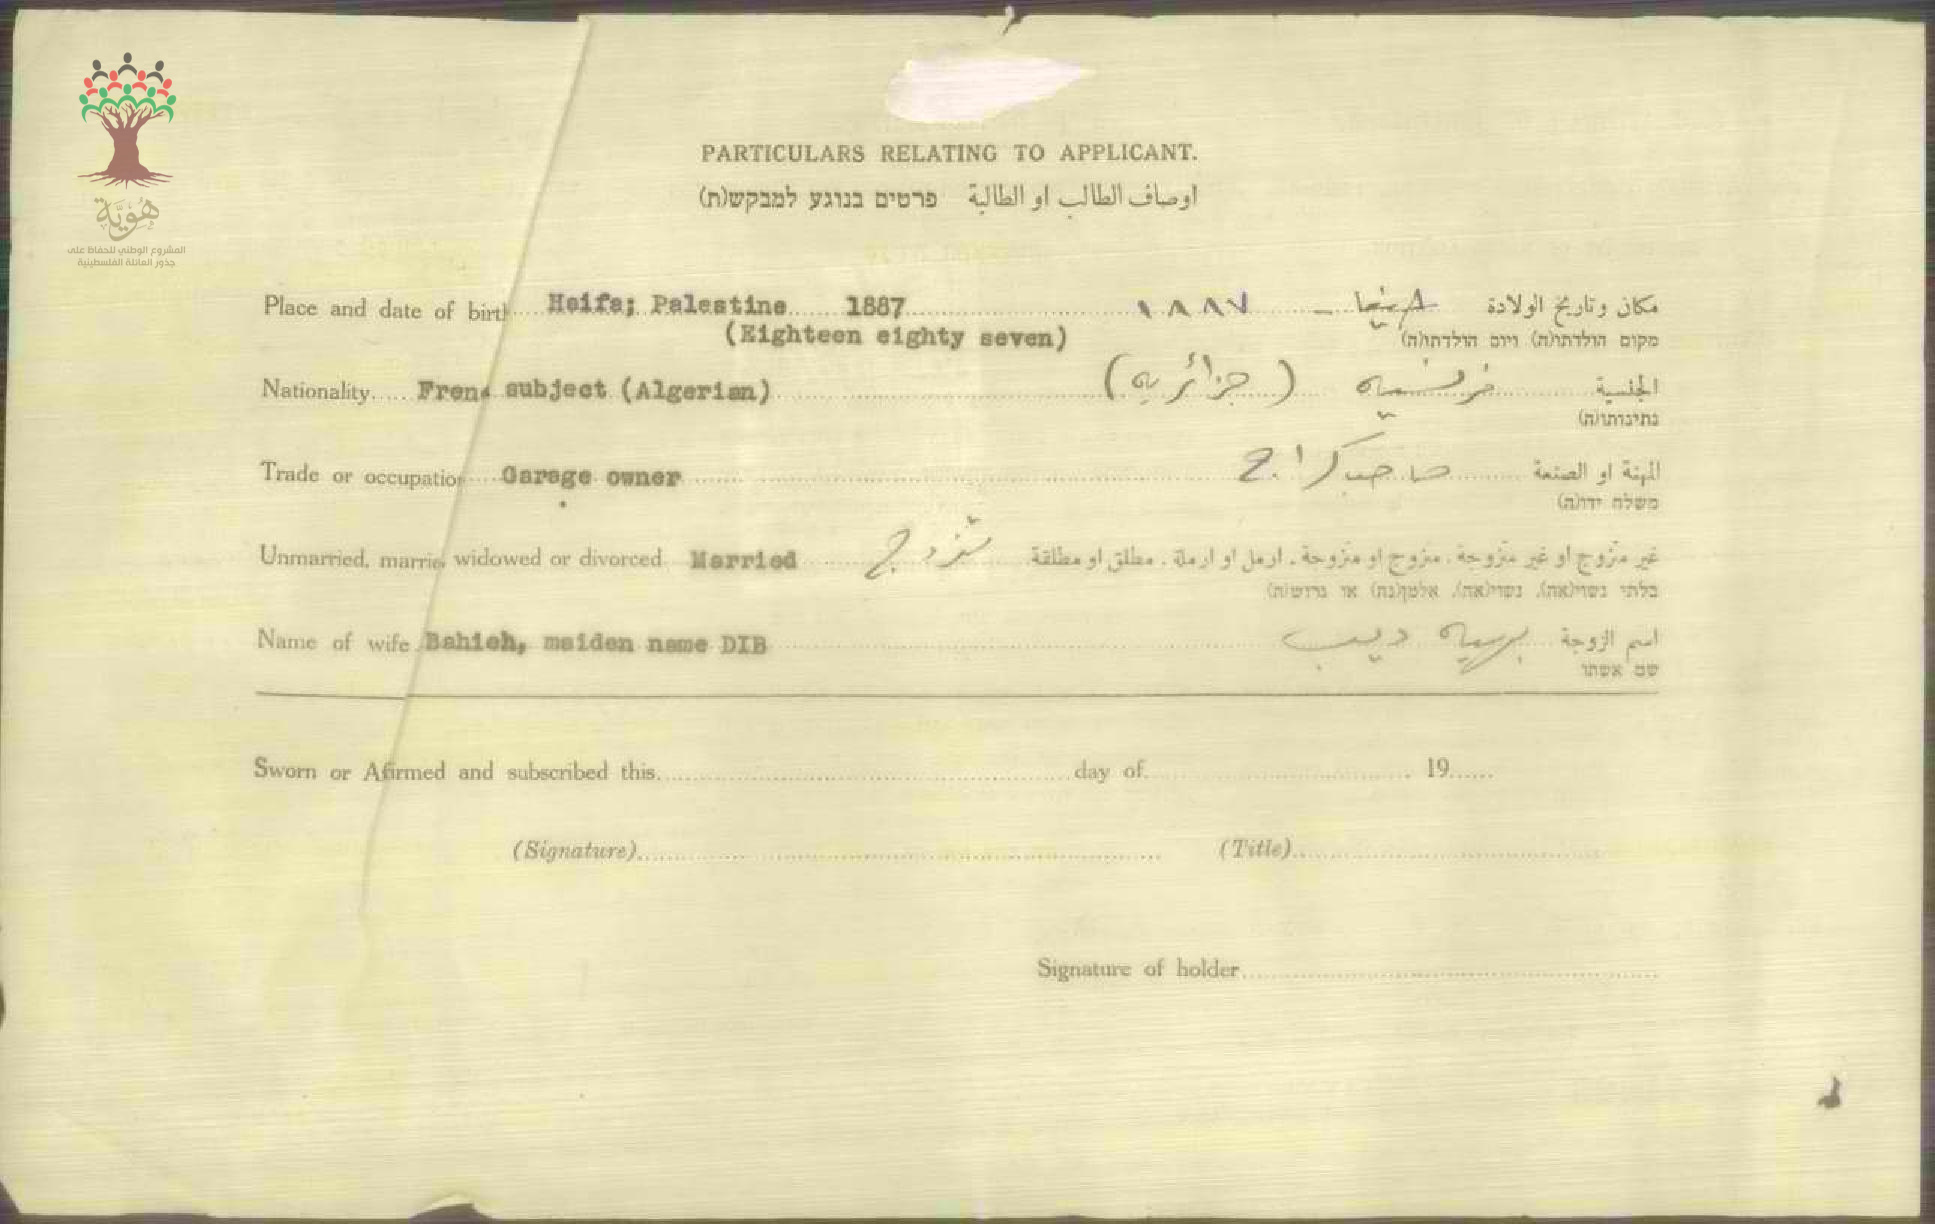 هُوِيَّة
المشروع الوطني للحفاظ على
جذور العائلة الفلسطينية
PARTICULARS RELATING TO APPLICANT.
اوصاف الطالب او الطالبة פרטים בנוגע למבקש(ת)
Place and date of birth Haifa; Palestine 1887 ١٨٨٧ - حيفا مكان وتاريخ الولادة
(Eighteen eighty seven) מקום הולדתו(ה) ויום הולדתו(ה)
Nationality Fren subject (Algerian) (جزائريه) فرنسيه الجنسية
נתינותו(ה)
Trade or occupation Garage owner صاحب كراج المهنة او الصنعة
משלח ידו(ה)
Unmarried, married widowed or divorced Married متزوج غير متزوج او غير متزوجة . متزوج او متزوجة . ارمل او ارملة . مطلق او مطلقة
בלתי נשוי(אה), נשוי(אה), אלמן(נה) או גרוש(ה)
Name of wife Bahieh, maiden name DIB بهيه ديب اسم الزوجة
שם אשתו
Sworn or Afirmed and subscribed this day of 19
(Signature) (Title)
Signature of holder